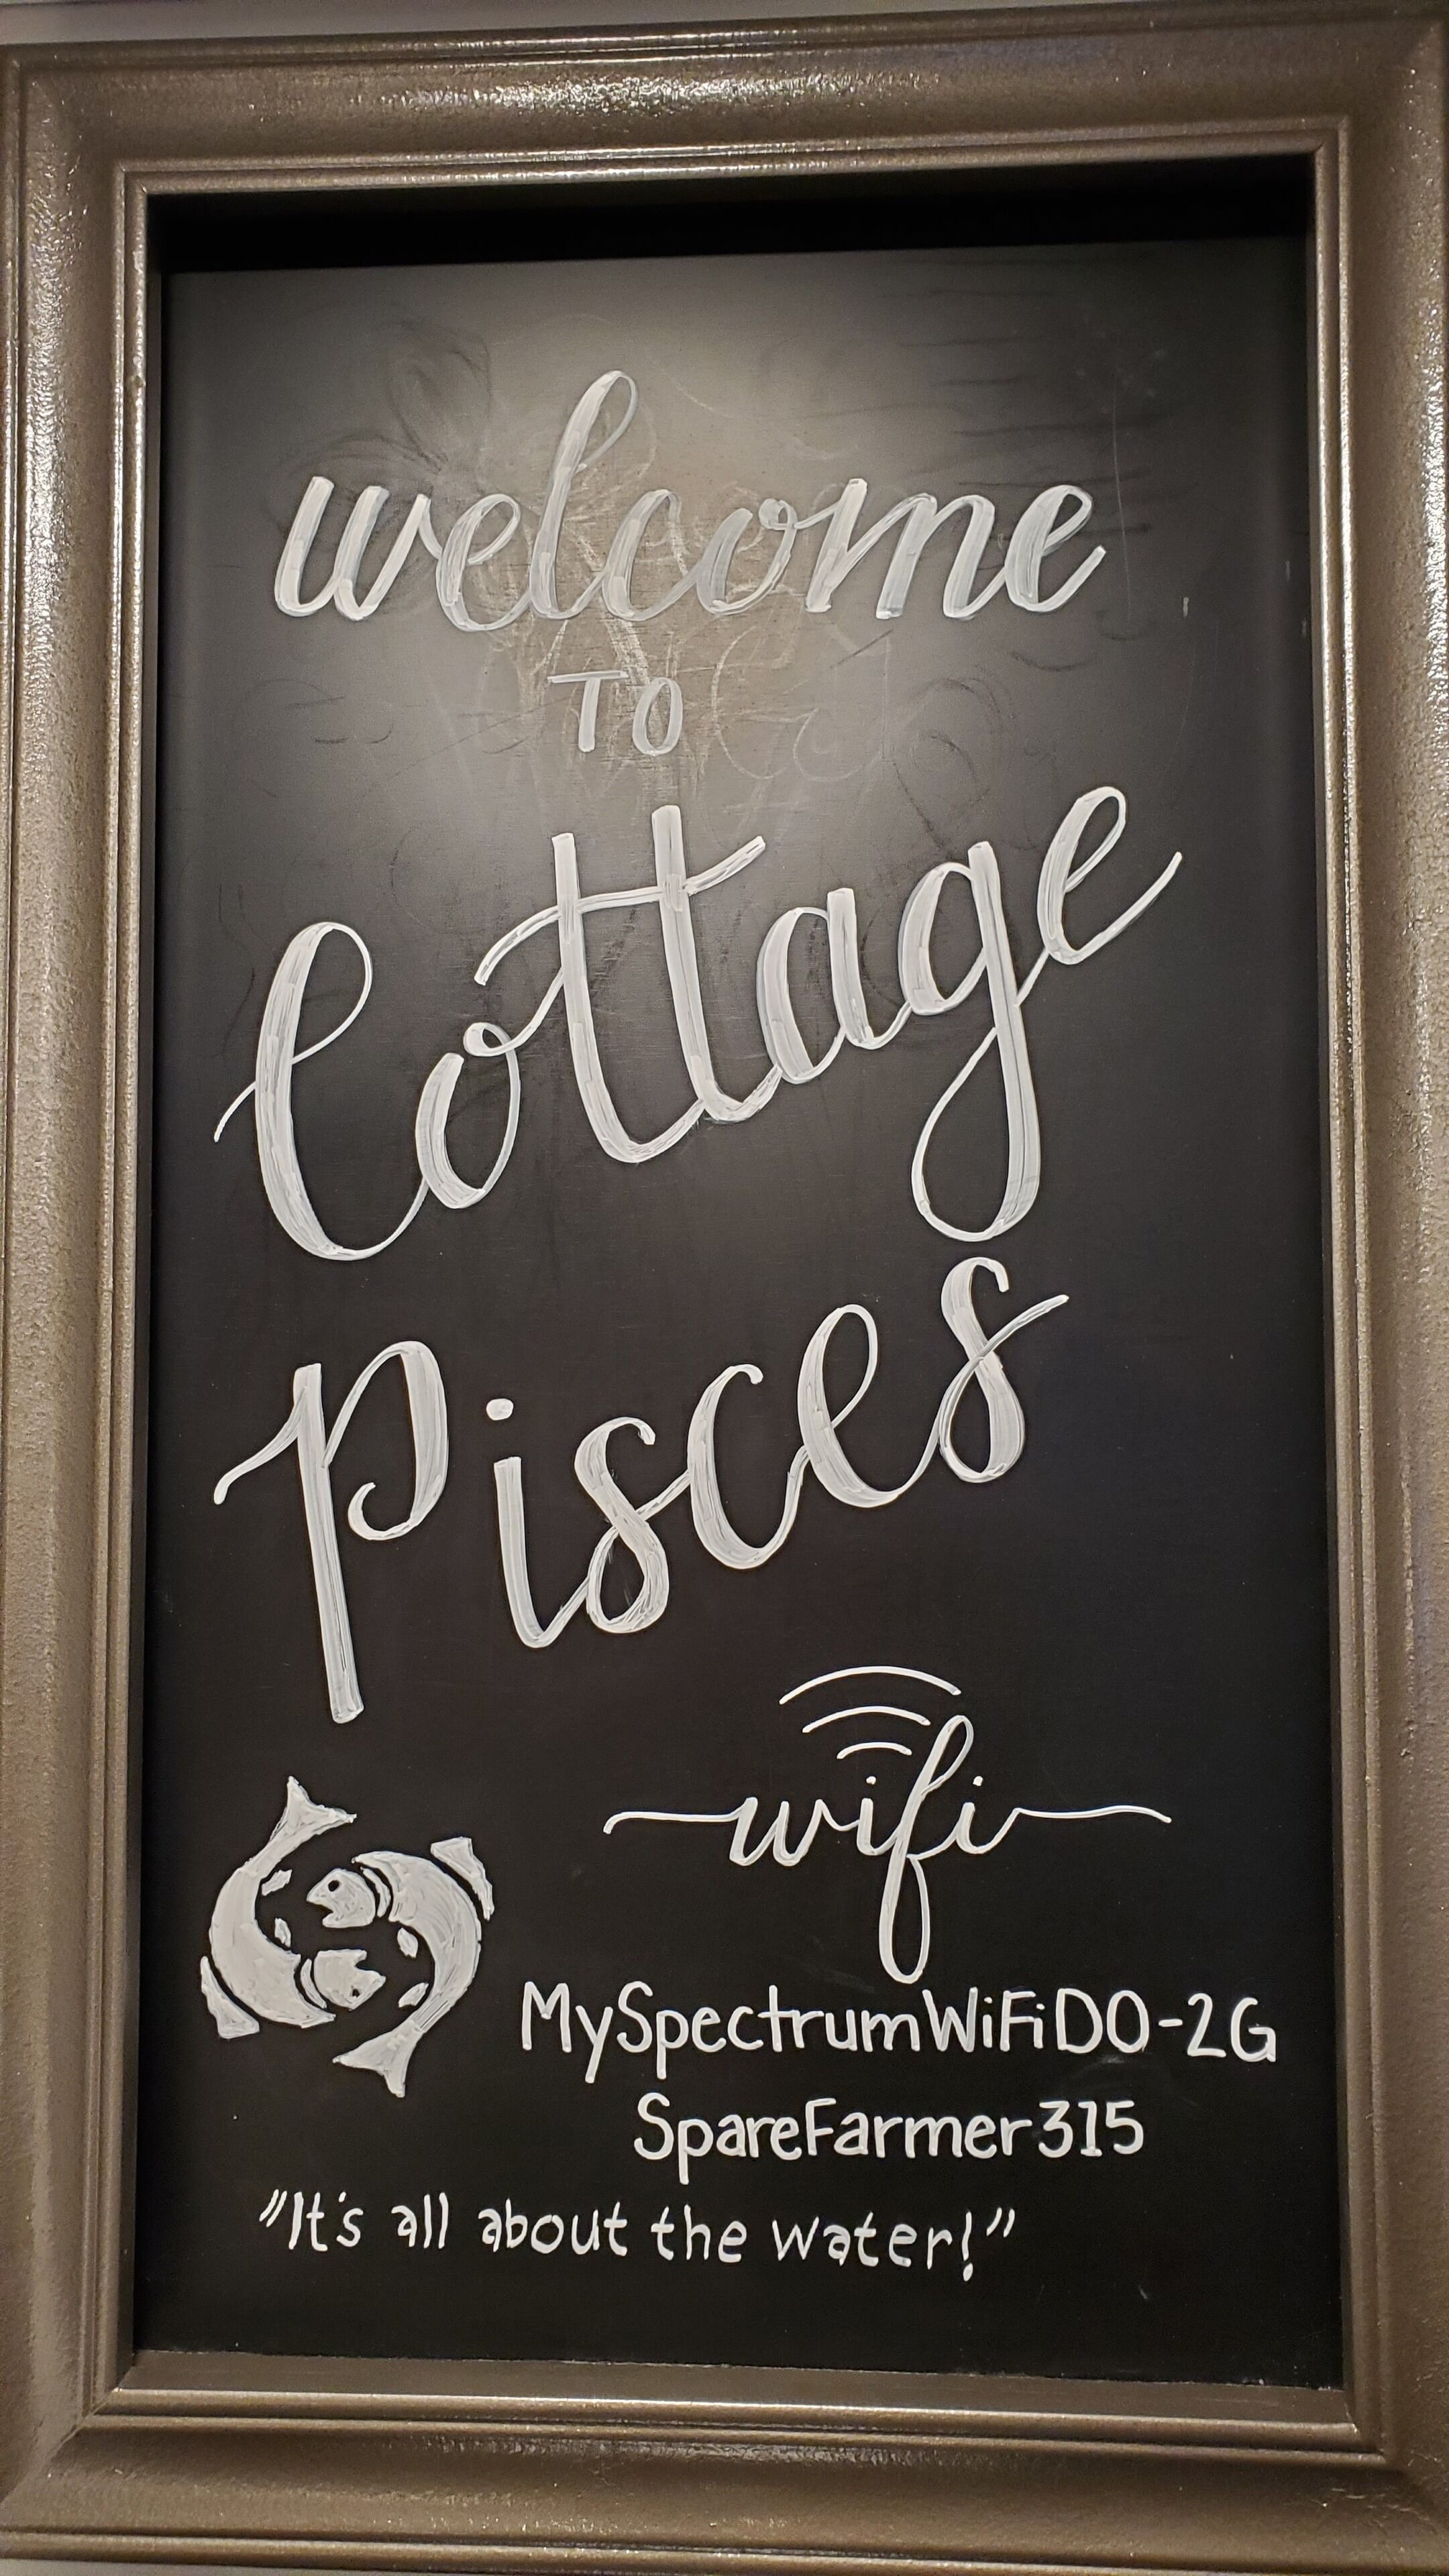 welcome
TO
Cottage
Pisces
wifi
MySpectrumWiFiD0-2G
SpareFarmer315
"It's all about the water!"